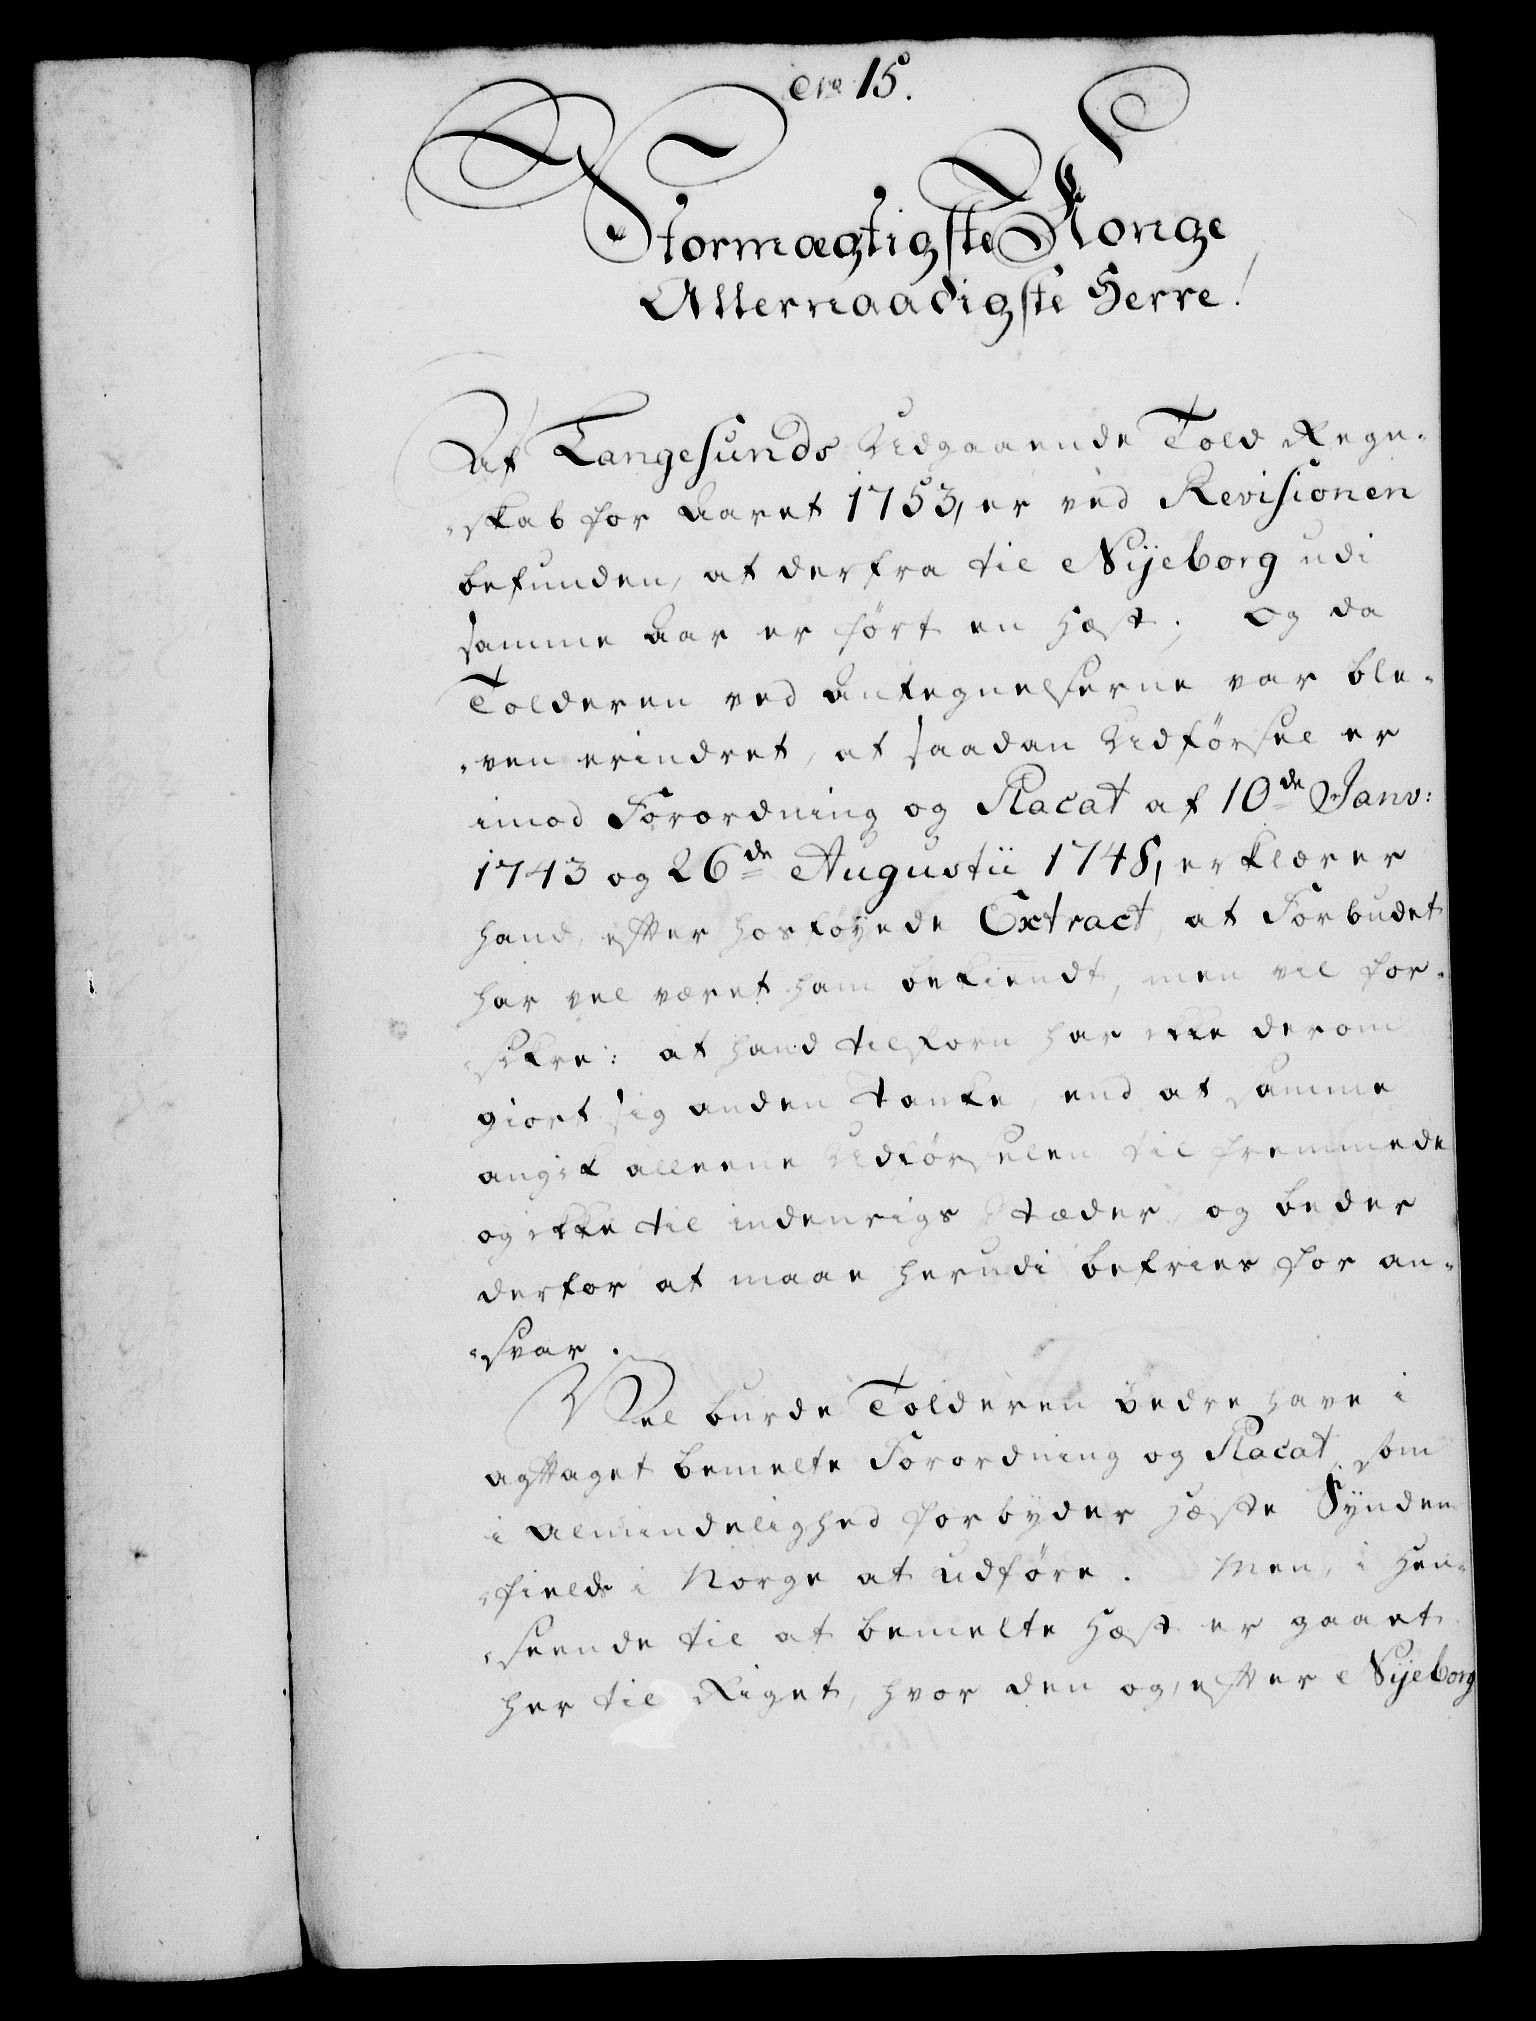 No 15.
Stormægtigste Konge,
Allernaadigste Herre!
Af Langesunds Udgaaende Told Regn-
-skab for Aaret 1753, er ved Revisionen
befunden, at derfra til Nÿeborg udi
samme Aar er ført en Hæst; og da
Tolderen ved Antegnelserne var ble-
-ven erindret, at saadan Udførsel er
imod Forordning og Placat af 10de Janv:
1743 og 26de Augustii 1748, erklærer
hand, efter hosføyede Extract, at Forbudet
har vel været ham bekiendt, men vil for-
-sikre: at hand tilforn har ikke derom
giort sig anden Tanke, end at samme
angik alleene Udførselen til fremmede
og ikke til indenrigs Stæder, og beder
derfor at maae herudi befries for an-
-svar.
Vel burde Tolderen bedre have i
agttaget bemelte Forordning og Placat, som
i Almindelighed forbyder Hæste Synden-
-fields i Norge at udføre. Men, i Hen-
-seende til at bemelte Hæst er gaaet
her til Riget, hvor den og, efter Nÿeborg